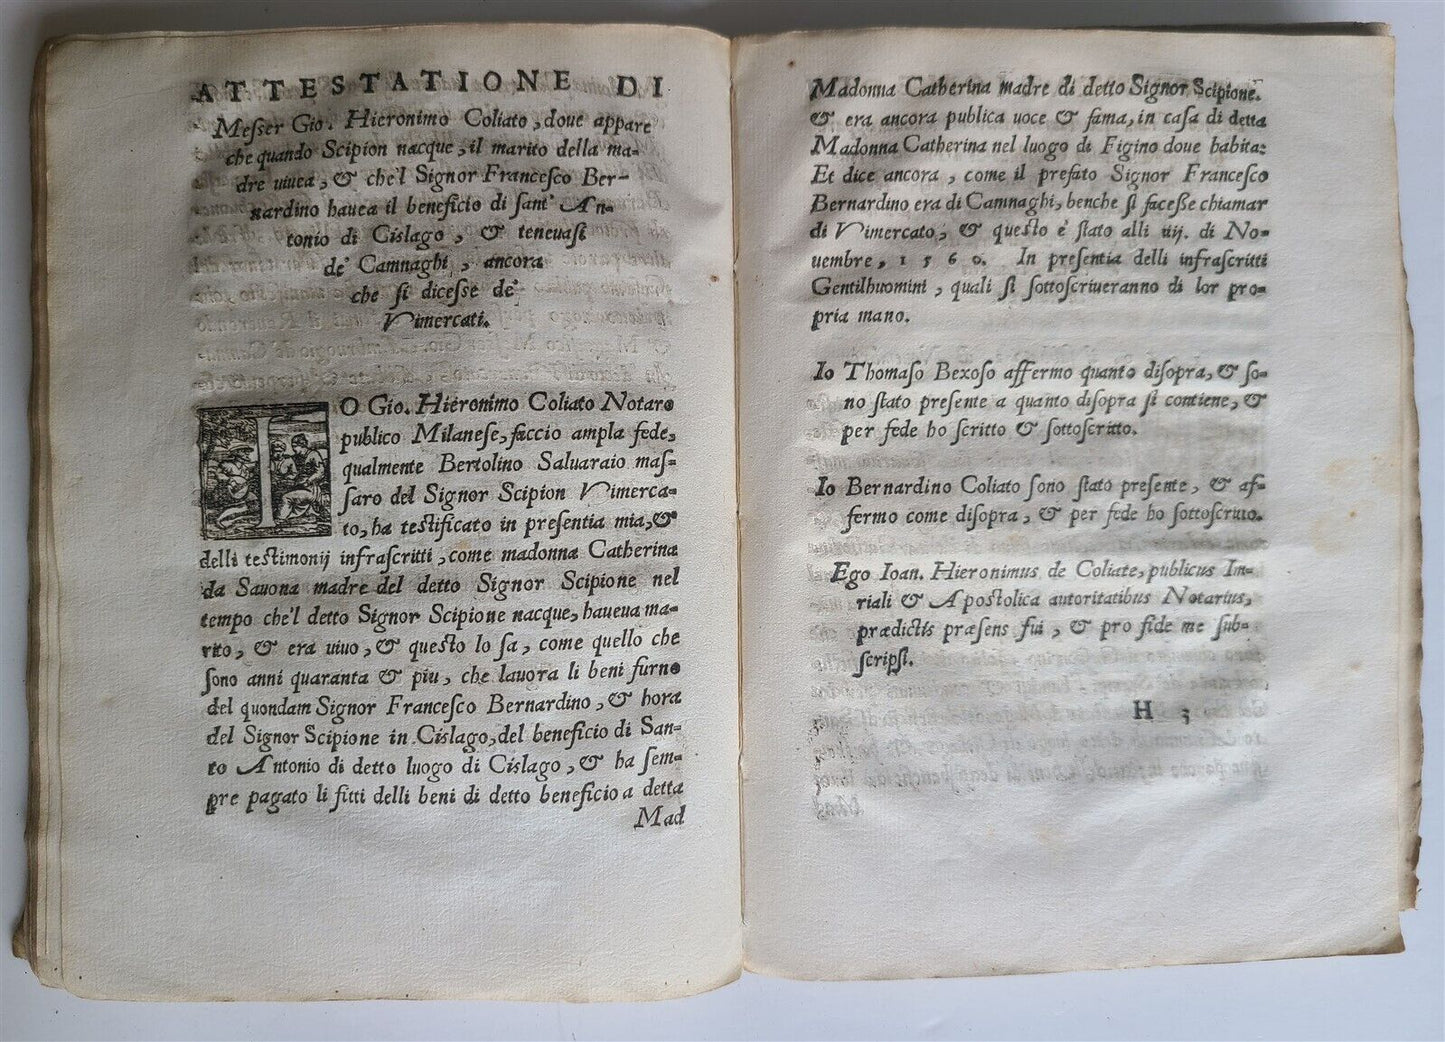 ATTESTATIONE DI
Meſſer Gio. Hieronimo Coliato, doue appare
che quando Scipion nacque, il marito della ma-
dre uiuea, & che'l Signor Franceſco Ber-
nardino hauea il beneficio di ſant' An-
tonio di Cislago, & teneuaſi
de' Camnaghi, ancora
che ſi diceſſe de'
Vimercati.
IO Gio. Hieronimo Coliato Notaro
publico Milaneſe, faccio ampla fede,
qualmente Bertolino Saluaraio maſ-
ſaro del Signor Scipion Vimerca-
to, ha teſtificato in preſentia mia, &
delli teſtimonij infraſcritti, come madonna Catherina
da Sauona madre del detto Signor Scipione nel
tempo che'l detto Signor Scipione nacque, haueua ma-
rito, & era uiuo, & queſto lo ſa, come quello che
ſono anni quaranta & piu, che lauora li beni furno
del quondam Signor Franceſco Bernardino, & hora
del Signor Scipione in Cislago, del beneficio di San-
to Antonio di detto luogo di Cislago, & ha ſem-
pre pagato li fitti delli beni di detto beneficio a detta
Mad
Madonna Catherina madre di detto Signor Scipione.
& era ancora publica uoce & fama, in caſa di detta
Madonna Catherina nel luogo di Figino doue habita:
Et dice ancora, come il prefato Signor Franceſco
Bernardino era di Camnaghi, benche ſi faceſſe chiamar
di Vimercato, & queſto è ſtato alli iiij. di No-
uembre, 1560. In preſentia delli infraſcritti
Gentilhuomini, quali ſi ſottoſcriueranno di lor pro-
pria mano.
Io Thomaſo Bexoſo affermo quanto diſopra, & ſo-
no ſtato preſente a quanto diſopra ſi contiene, &
per fede ho ſcritto & ſottoſcritto.
Io Bernardino Coliato ſono ſtato preſente, & af-
fermo come diſopra, & per fede ho ſottoſcritto.
Ego Ioan. Hieronimus de Coliate, publicus Im-
riali & Apoſtolica autoritatibus Notarius,
prædictis præſens fui, & pro fide me ſub-
ſcripſi.
H 3